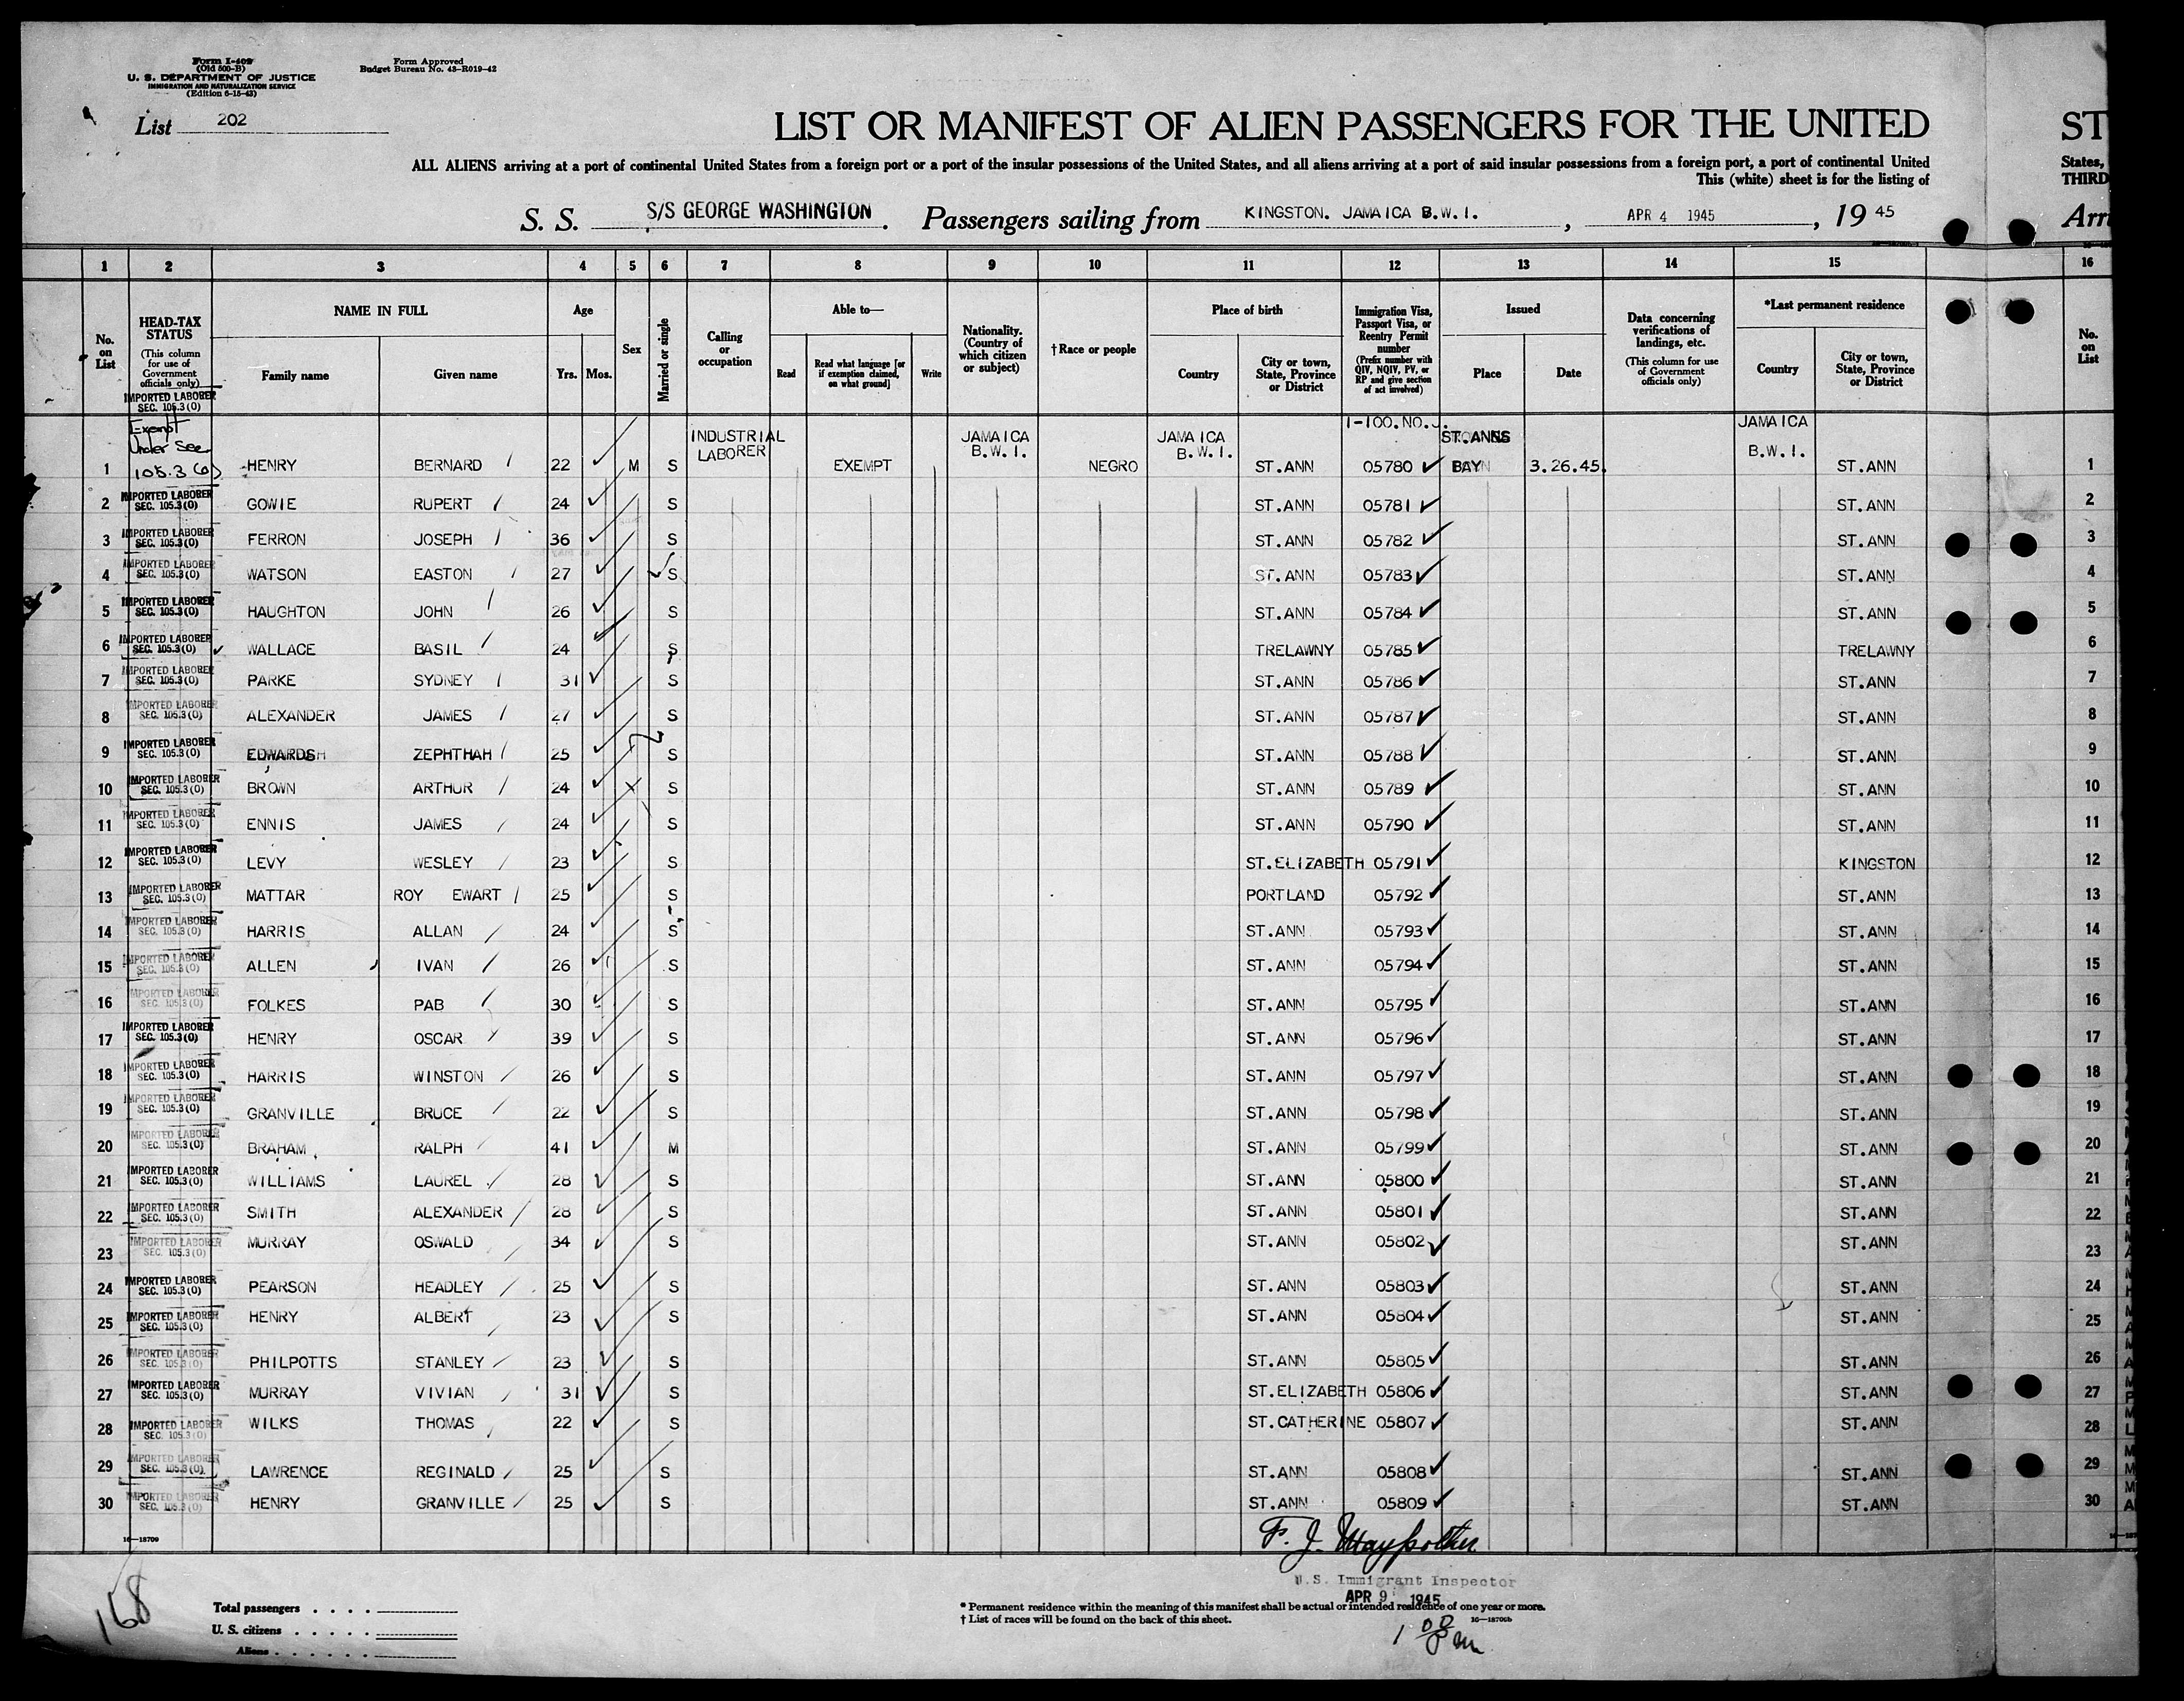 Form I-409
(Old 500-B)
U. S. DEPARTMENT OF JUSTICE
IMMIGRATION AND NATURALIZATION SERVICE
(Edition 6-15-43)
Form Approved
Budget Bureau No. 43-R019-42
List 202
LIST OR MANIFEST OF ALIEN PASSENGERS FOR THE UNITED ST
ALL ALIENS arriving at a port of continental United States from a foreign port or a port of the insular possessions of the United States, and all aliens arriving at a port of said insular possessions from a foreign port, a port of continental United States,
This (white) sheet is for the listing of THIRD
S. S. S/S GEORGE WASHINGTON. Passengers sailing from KINGSTON. JAMAICA B.W.I., APR 4 1945, 19 45 Arri
1 2 3 4 5 6 7 8 9 10 11 12 13 14 15 16
No. on List
HEAD-TAX STATUS
(This column for use of Government officials only)
NAME IN FULL
Family name Given name
Age
Yrs. Mos.
Sex
Married or single
Calling or occupation
Able to—
Read Read what language [or if exemption claimed, on what ground] Write
Nationality. (Country of which citizen or subject)
†Race or people
Place of birth
Country City or town, State, Province or District
Immigration Visa, Passport Visa, or Reentry Permit number
(Prefix number with QIV, NQIV, PV, or RP and give section of act involved)
Issued
Place Date
Data concerning verifications of landings, etc.
(This column for use of Government officials only)
*Last permanent residence
Country City or town, State, Province or District
No. on List
IMPORTED LABORER SEC. 105.3(0)
Exempt Under Sec 105.3(0)
I-100.NO.J.
1 HENRY BERNARD 22 M S INDUSTRIAL LABORER EXEMPT JAMAICA B.W.I. NEGRO JAMAICA B.W.I. ST.ANN 05780 ST.ANNS BAY 3.26.45. JAMAICA B.W.I. ST.ANN 1
2 IMPORTED LABORER SEC. 105.3(0) GOWIE RUPERT 24 S ST.ANN 05781 ST.ANN 2
3 IMPORTED LABORER SEC. 105.3(0) FERRON JOSEPH 36 S ST.ANN 05782 ST.ANN 3
4 IMPORTED LABORER SEC. 105.3(0) WATSON EASTON 27 S ST.ANN 05783 ST.ANN 4
5 IMPORTED LABORER SEC. 105.3(0) HAUGHTON JOHN 26 S ST.ANN 05784 ST.ANN 5
6 IMPORTED LABORER SEC. 105.3(0) WALLACE BASIL 24 S TRELAWNY 05785 TRELAWNY 6
7 IMPORTED LABORER SEC. 105.3(0) PARKE SYDNEY 31 S ST.ANN 05786 ST.ANN 7
8 IMPORTED LABORER SEC. 105.3(0) ALEXANDER JAMES 27 S ST.ANN 05787 ST.ANN 8
9 IMPORTED LABORER SEC. 105.3(0) EDWARDS ZEPHTHAH 25 S ST.ANN 05788 ST.ANN 9
10 IMPORTED LABORER SEC. 105.3(0) BROWN ARTHUR 24 S ST.ANN 05789 ST.ANN 10
11 IMPORTED LABORER SEC. 105.3(0) ENNIS JAMES 24 S ST.ANN 05790 ST.ANN 11
12 IMPORTED LABORER SEC. 105.3(0) LEVY WESLEY 23 S ST.ELIZABETH 05791 KINGSTON 12
13 IMPORTED LABORER SEC. 105.3(0) MATTAR ROY EWART 25 S PORTLAND 05792 ST.ANN 13
14 IMPORTED LABORER SEC. 105.3(0) HARRIS ALLAN 24 S ST.ANN 05793 ST.ANN 14
15 IMPORTED LABORER SEC. 105.3(0) ALLEN IVAN 26 S ST.ANN 05794 ST.ANN 15
16 IMPORTED LABORER SEC. 105.3(0) FOLKES PAB 30 S ST.ANN 05795 ST.ANN 16
17 IMPORTED LABORER SEC. 105.3(0) HENRY OSCAR 39 S ST.ANN 05796 ST.ANN 17
18 IMPORTED LABORER SEC. 105.3(0) HARRIS WINSTON 26 S ST.ANN 05797 ST.ANN 18
19 IMPORTED LABORER SEC. 105.3(0) GRANVILLE BRUCE 22 S ST.ANN 05798 ST.ANN 19
20 IMPORTED LABORER SEC. 105.3(0) BRAHAM RALPH 41 M ST.ANN 05799 ST.ANN 20
21 IMPORTED LABORER SEC. 105.3(0) WILLIAMS LAUREL 28 S ST.ANN 05800 ST.ANN 21
22 IMPORTED LABORER SEC. 105.3(0) SMITH ALEXANDER 28 S ST.ANN 05801 ST.ANN 22
23 IMPORTED LABORER SEC. 105.3(0) MURRAY OSWALD 34 S ST.ANN 05802 ST.ANN 23
24 IMPORTED LABORER SEC. 105.3(0) PEARSON HEADLEY 25 S ST.ANN 05803 ST.ANN 24
25 IMPORTED LABORER SEC. 105.3(0) HENRY ALBERT 23 S ST.ANN 05804 ST.ANN 25
26 IMPORTED LABORER SEC. 105.3(0) PHILPOTTS STANLEY 23 S ST.ANN 05805 ST.ANN 26
27 IMPORTED LABORER SEC. 105.3(0) MURRAY VIVIAN 31 S ST.ELIZABETH 05806 ST.ANN 27
28 IMPORTED LABORER SEC. 105.3(0) WILKS THOMAS 22 S ST.CATHERINE 05807 ST.ANN 28
29 IMPORTED LABORER SEC. 105.3(0) LAWRENCE REGINALD 25 S ST.ANN 05808 ST.ANN 29
30 IMPORTED LABORER SEC. 105.3(0) HENRY GRANVILLE 25 S ST.ANN 05809 ST.ANN 30
16—18709
F. J.
U.S. Immigrant Inspector
APR 9 1945
168
Total passengers . . . .
U. S. citizens . . . . .
Aliens . . . . . .
* Permanent residence within the meaning of this manifest shall be actual or intended residence of one year or more.
† List of races will be found on the back of this sheet.